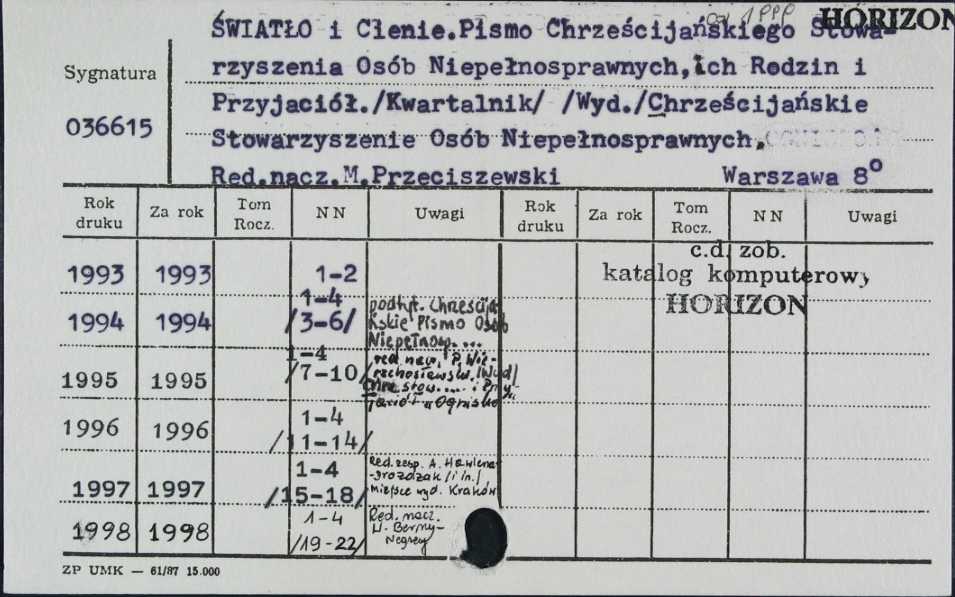 ŚWIATŁO i Cienie.Pismo Chrześcijańskiego Stowa-
HORIZON
Sygnatura
rzyszenia Osób Niepełnosprawnych,ich Rodzin i
Przyjaciół./Kwartalnik/ /Wyd./Chrześcijańskie
036615
Stowarzyszenie Osób Niepełnosprawnych.
Red.nacz.M.Przeciszewski Warszawa 8°
Rok druku Za rok Tom Rocz. NN Uwagi Rok druku Za rok Tom Rocz. NN Uwagi
c.d. zob.
katalog komputerowy
HORIZON
1993 1993 1-2
1994 1994 1-4 /3-6/ podtyt. Chrześcijańskie Pismo Osób Niepełnosp. ...
1995 1995 1-4 /7-10/ red. nacz. P. /Wyd/ Chrz. stow. .... i "Ognisko"
1996 1996 1-4 /11-14/
1997 1997 1-4 /15-18/ Red. zesp. A. /i in./ miejsce wyd. Kraków
1998 1998 1-4 /19-22/ Red. nacz.
ZP UMK — 61/87 15.000